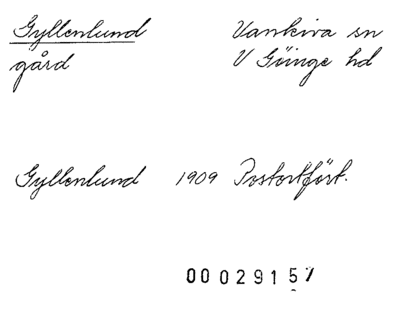 Gyllenlund Vankiva sn
gård V Göinge hd
Gyllenlund 1909 Postortför​t.
00029157